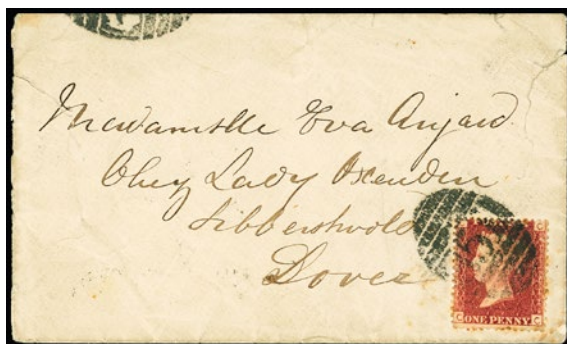 Madamslle Eva Anjard
Chez Lady Oxenden
Sibbertswold
Dover
C C
C ONE PENNY C